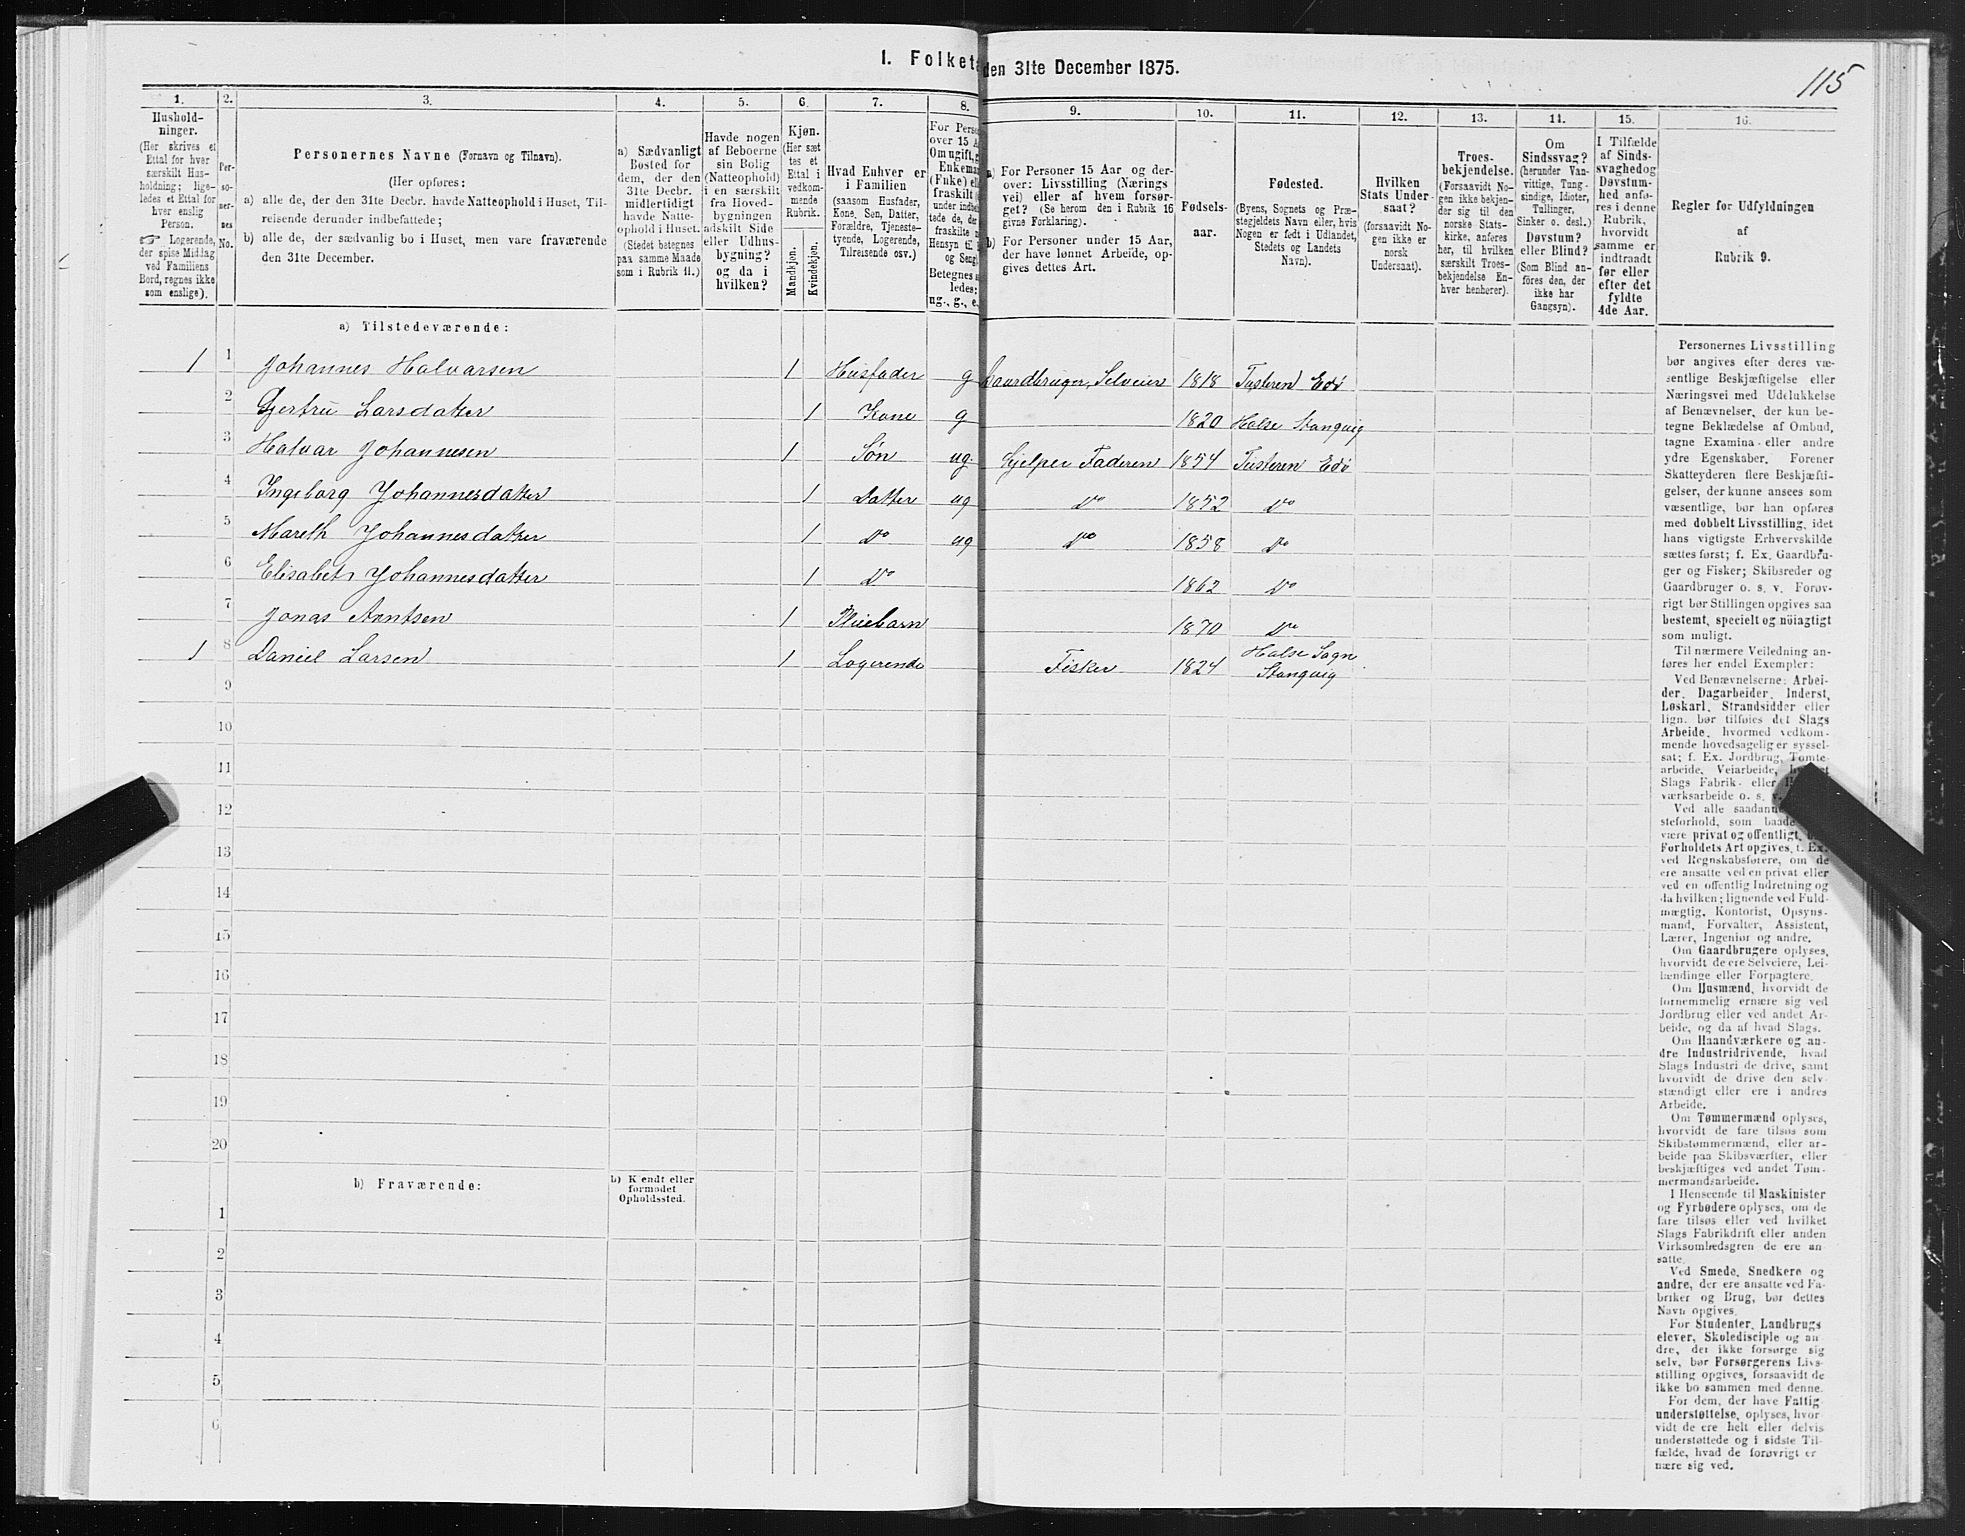 I. Folketa
den 31te December 1875.
115
1.
2.
3.
4.
5.
6.
7.
8.
9.
10.
11.
12.
13.
14.
15.
16.
Hushold-
ninger.
(Her skrives et
Ettal for hver
særskilt Hus-
holdning; lige-
ledes et Ettal for
hver enslig
Person.
☞ Logerende,
der spise Middag
ved Familiens
Bord, regnes ikke
som enslige).
Per-
so-
ner-
nes
No.
Personernes Navne (Fornavn og Tilnavn).
(Her opføres:
a) alle de, der den 31te Decbr. havde Natteophold i Huset, Til-
reisende derunder indbefattede;
b) alle de, der sædvanlig bo i Huset, men vare fraværende
den 31te December.
a) Sædvanligt
Bosted for
dem, der den
31te Decbr.
midlertidigt
havde Natte-
ophold i Huset.
(Stedet betegnes
paa samme Maade
som i Rubrik 11.)
Havde nogen
af Beboerne
sin Bolig
(Natteophold)
i en særskilt
fra Hoved-
bygningen
adskilt Side
eller Udhus-
bygning?
og da i
hvilken?
Kjøn.
(Her sæt
tes et
Ettal i
vedkom-
mende
Rubrik.
Mandkjøn.
Kvindekjøn.
Hvad Enhver er
i Familien
(saasom Husfader,
Kone, Søn, Datter,
Forældre, Tjeneste-
tyende, Logerende,
Tilreisende osv.)
For Perso
over 15 A
Om ugift, g
Enkeman
(Enke) elle
fraskilt (
under indbe
tede de, der
fraskilte
Hensyn til
og Seng)
Betegnes s
ledes:
ug., g., e.,
a) For Personer 15 Aar og der-
over: Livsstilling (Nærings
vei) eller af hvem forsør-
get? (Se herom den i Rubrik 16
givne Forklaring).
b) For Personer under 15 Aar,
der have lønnet Arbeide, op-
gives dettes Art.
Fødsels-
aar.
Fødested.
(Byens, Sognets og Præ-
stegjeldets Navn eller, hvis
Nogen er født i Udlandet,
Stedets og Landets
Navn).
Hvilken
Stats Under
saat?
(forsaavidt No-
gen ikke er
norsk
Undersaat).
Troes-
bekjendelse.
(Forsaavidt No-
gen ikke bekjen-
der sig til den
norske Stats-
kirke, anføres
her, til hvilken
særskilt Troes-
bekjendelse En-
hver henhører).
Om
Sindssvag?
(herunder Van-
vittige, Tung-
sindige, Idioter,
Tullinger,
Sinker o. desl.)
Døvstum?
eller Blind?
(Som Blind an-
føres den, der
ikke har
Gangsyn).
I Tilfælde
af Sinds-
svaghed og
Døvstum-
hed anfø-
res i denne
Rubrik,
hvorvidt
samme er
indtraadt
før eller
efter det
fyldte
4de Aar.
Regler for Udfyldningen
af
Rubrik 9.
a) Tilstedeværende:
1 1 Johannes Halvarsen 1 Husfader g Gaardbruger, Selveier 1818 Tusteren Edø
2 Gjertru Larsdatter 1 Kone g 1820 Halse Stangvig
3 Halvar Johannesen 1 Søn ug Hjelper Faderen 1854 Tusteren Edø
4 Ingeborg Johannesdatter 1 Datter ug Do 1852 Do
5 Mareth Johannesdatter 1 Do ug Do 1858 Do
6 Elisabet Johannesdatter 1 Do 1862 Do
7 Jonas Arntsen 1 Pleiebarn 1870 Do
1 8 Daniel Larsen 1 Logerende Fisker 1824 Halse Sogn
Stangvig
9
10
11
12
13
14
15
16
17
18
19
20
b) Fraværende:
b) Kjendt eller
formodet
Opholdssted.
1
2
3
4
5
6
Personernes Livsstilling
bør angives efter deres væ-
sentlige Beskjæftigelse eller
Næringsvei med Udelukkelse
af Benævnelser, der kun be-
tegne Beklædelse af Ombud,
tagne Examina eller andre
ydre Egenskaber. Forener
Skatteyderen flere Beskjæfti-
gelser, der kunne ansees som
væsentlige, bør han opføres
med dobbelt Livsstilling, idet
hans vigtigste Erhvervskilde
sættes først; f. Ex. Gaardbru-
ger og Fisker; Skibsreder og
Gaardbruger o. s. v. Forøv-
rigt bør Stillingen opgives saa
bestemt, specielt og nöiagtigt
som muligt.
Til nærmere Veiledning an-
føres her endel Exempler:
Ved Benævnelserne: Arbei-
der, Dagarbeider, Inderst,
Løskarl, Strandsidder eller
lign. bør tilføies det Slags
Arbeide, hvormed vedkom-
mende hovedsagelig er syssel-
sat; f. Ex. Jordbrug, Tomte-
arbeide, Veiarbeide,
Slags Fabrik- eller
værksarbeide o. s. v.
Ved alle saadanne
steforhold, som baade
være privat og offentligt,
Forholdets Art opgives, f. Ex.
ved Regnskabsførere, om de
ere ansatte ved en privat eller
ved en offentlig Indretning og
da hvilken; lignende ved Fuld-
mægtig, Kontorist, Opsyns-
mand, Forvalter, Assistent,
Lærer, Ingeniør og andre.
Om Gaardbrugere oplyses,
hvorvidt de ere Selveiere, Lei-
lændinge eller Forpagtere.
Om Husmænd, hvorvidt de
fornemmelig ernære sig ved
Jordbrug eller ved andet Ar-
beide, og da af hvad Slags.
Om Haandværkere og an-
dre Industridrivende, hvad
Slags Industri de drive, samt
hvorvidt de drive den selv-
stændigt eller ere i andres
Arbeide.
Om Tømmermænd oplyses,
hvorvidt de fare tilsøs som
Skibstømmermænd, eller ar-
beide paa Skibsværfter, eller
beskjæftiges ved andet Tøm-
mermandsarbeide.
I Henseende til Maskinister
og Fyrbødere oplyses, om de
fare tilsøs eller ved hvilket
Slags Fabrikdrift eller anden
Virksomhedsgren de ere an-
satte.
Ved Smede, Snedkere og
andre, der ere ansatte ved Fa-
briker og Brug, bør dettes
Navn opgives.
For Studenter, Landbrugs
elever, Skoledisciple og an
dre, der ikke forsørge sig
selv, bør Forsørgerens Livs-
stilling opgives, forsaavidt de
ikke bo sammen med denne.
For dem, der have Fattig
understøttelse, oplyses, hvor-
vidt de ere helt eller delvis
understøttede og i sidste Til-
fælde, hvad de forøvrigt er
nære sig ved.